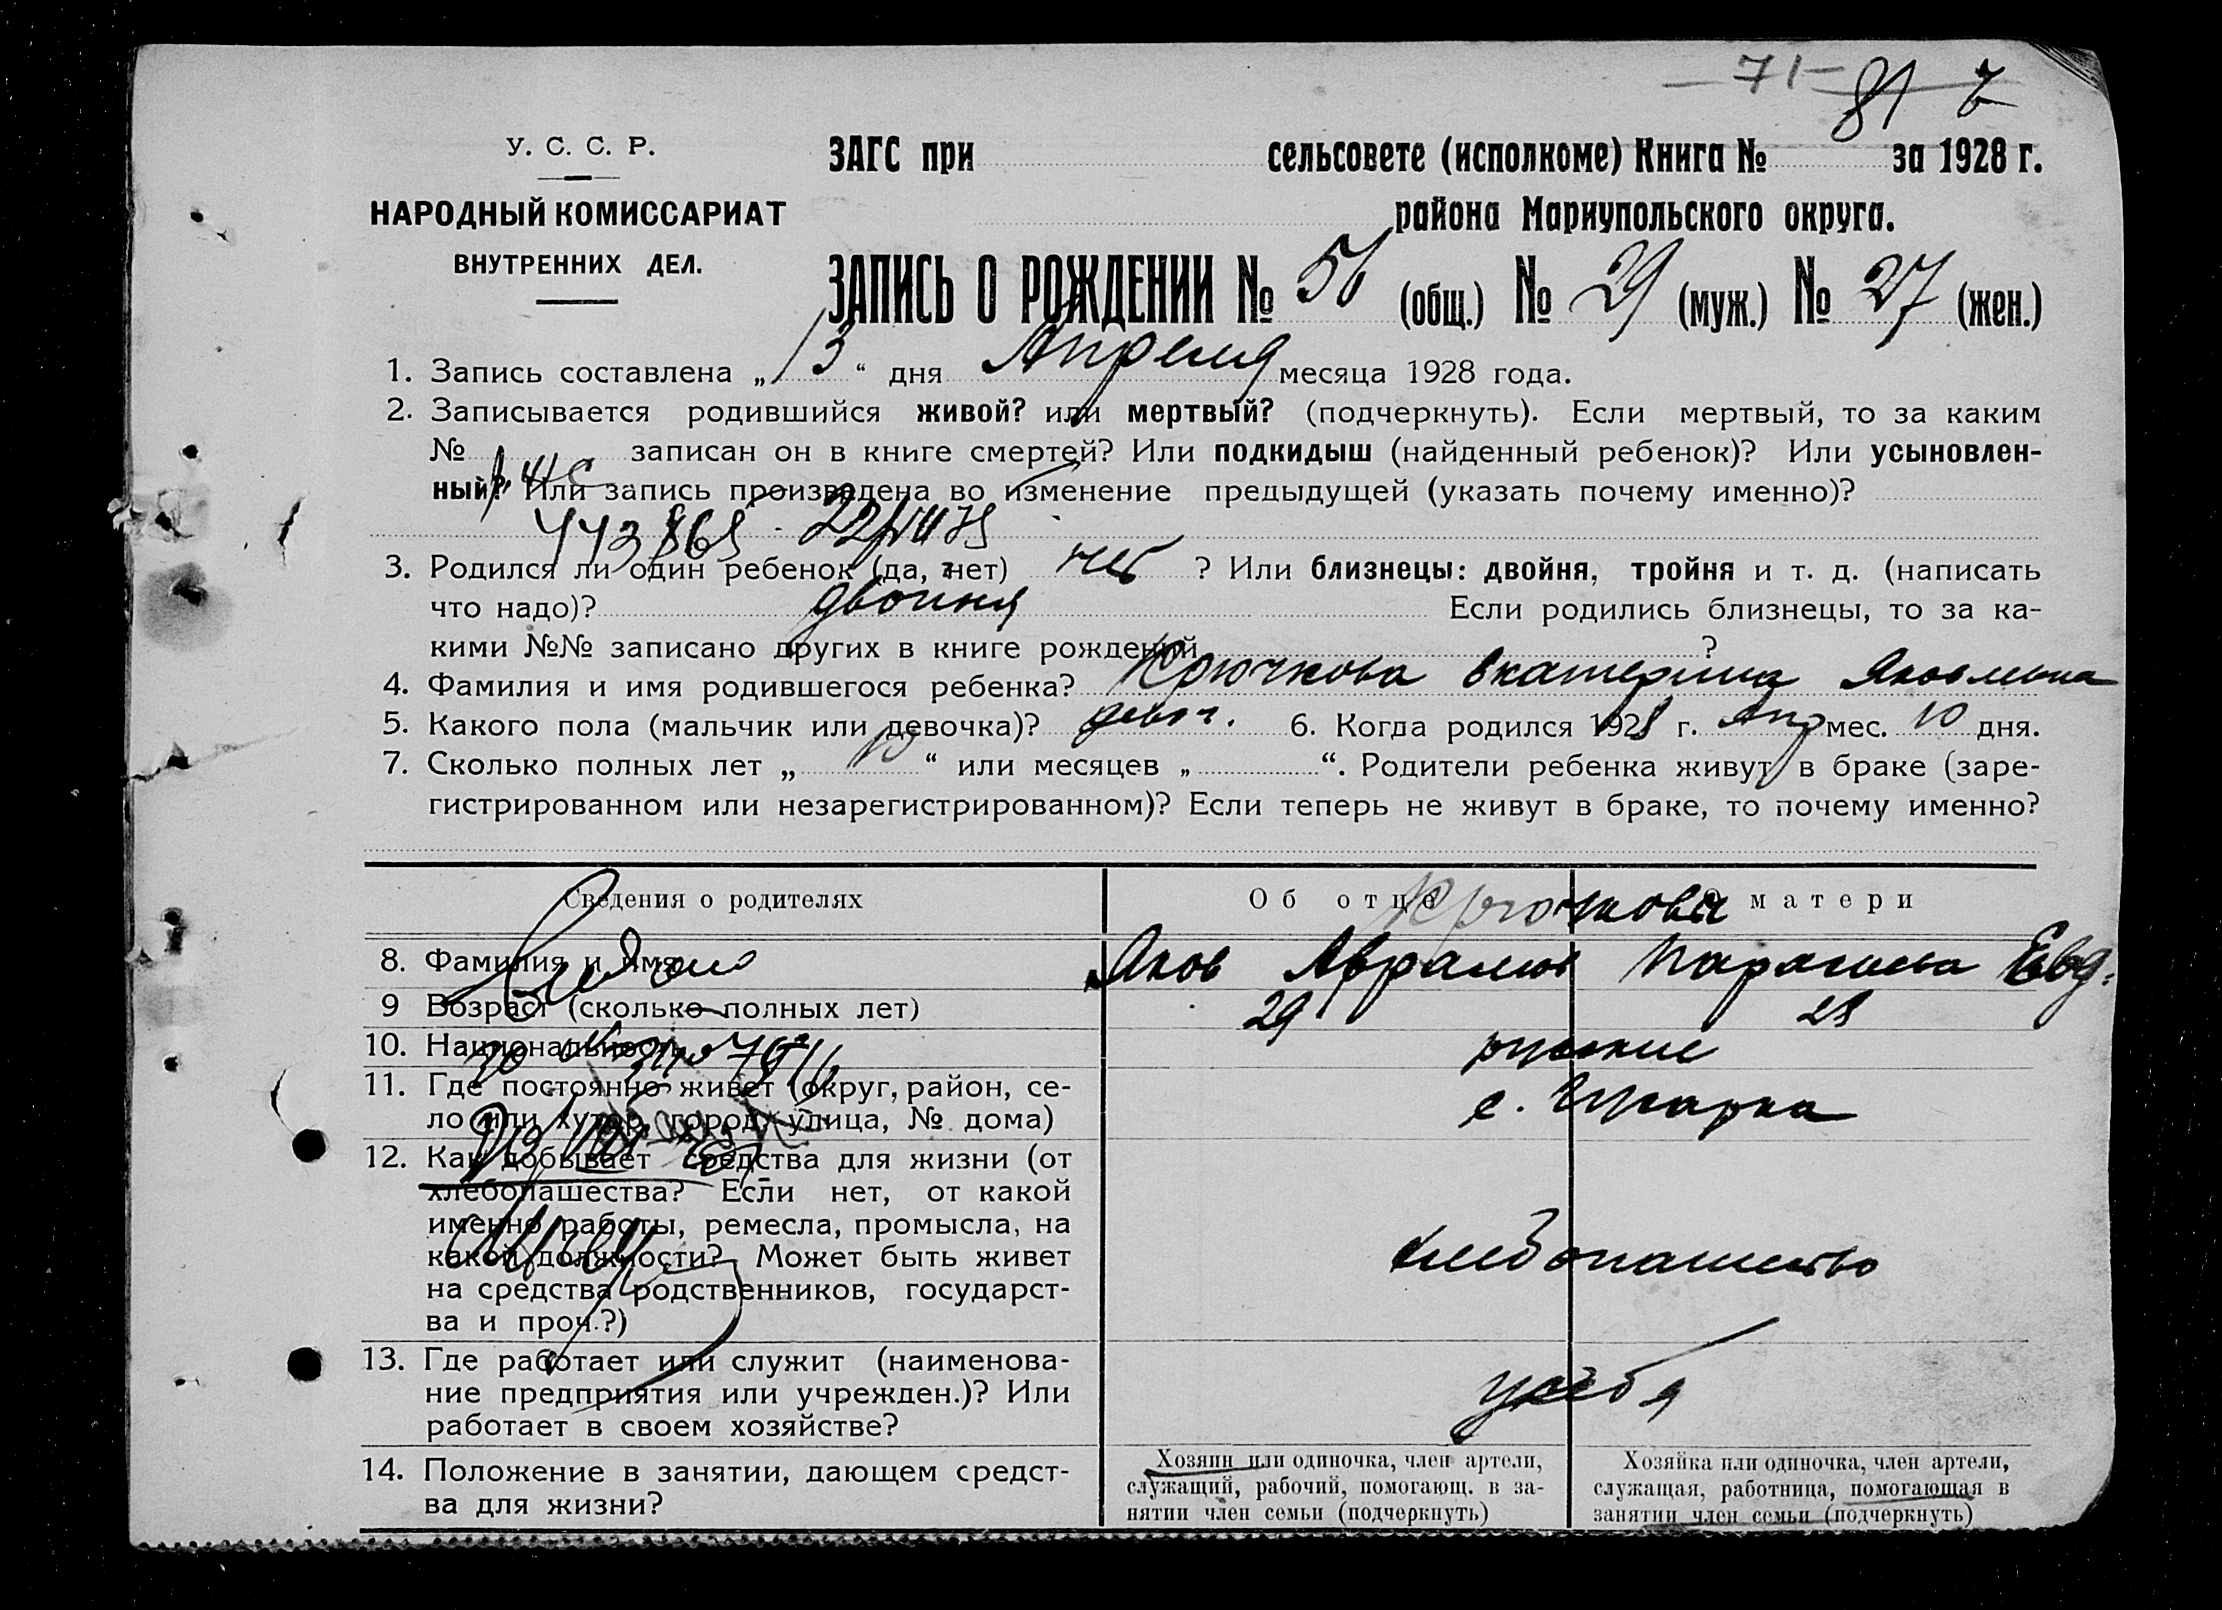 — 71 —
81
У. С. С. Р.
НАРОДНЫЙ КОМИССАРИАТ
ВНУТРЕННИХ ДЕЛ.
ЗАГС при сельсовете (исполкоме) Книга № за 1928 г.
района Мариупольского округа.
ЗАПИСЬ О РОЖДЕНИИ № 56 (общ.) № 29 (муж.) № 27 (жен.)
1. Запись составлена „13“ дня Апреля месяца 1928 года.
2. Записывается родившийся живой? или мертвый? (подчеркнуть). Если мертвый, то за каким
№ записан он в книге смертей? Или подкидыш (найденный ребенок)? Или усыновлен-
ный? Или запись произведена во изменение предыдущей (указать почему именно)?
3. Родился ли один ребенок (да, нет) нет ? Или близнецы: двойня, тройня и т. д. (написать
что надо)? двойня Если родились близнецы, то за ка-
кими №№ записано других в книге рождений ?
4. Фамилия и имя родившегося ребенка? Крючкова Екатерина Яковлевна
5. Какого пола (мальчик или девочка)? девоч. 6. Когда родился 1928 г. Апр мес. 10 дня.
7. Сколько полных лет „10“ или месяцев „ “. Родители ребенка живут в браке (заре-
гистрированном или незарегистрированном)? Если теперь не живут в браке, то почему именно?
Сведения о родителях Об отце О матери
Крючковы
8. Фамилия и имя Яков Аврамов Парасковья Евд.
9 Возраст (сколько полных лет) 29 28
10. Национальность русские
11. Где постоянно живет (округ, район, се-
ло или хутор, город, улица, № дома)
12. Как добывает средства для жизни (от
хлебопашества? Если нет, от какой
именно работы, ремесла, промысла, на
какой должности? Может быть живет
на средства родственников, государст-
ва и проч.?)
хлебопашество
13. Где работает или служит (наименова-
ние предприятия или учрежден.)? Или
работает в своем хозяйстве?
у себя
14. Положение в занятии, дающем средст-
ва для жизни?
Хозяин или одиночка, член артели,
служащий, рабочий, помогающ. в за-
нятии член семьи (подчеркнуть)
Хозяйка или одиночка, член артели,
служащая, работница, помогающая в
занятии член семьи (подчеркнуть)